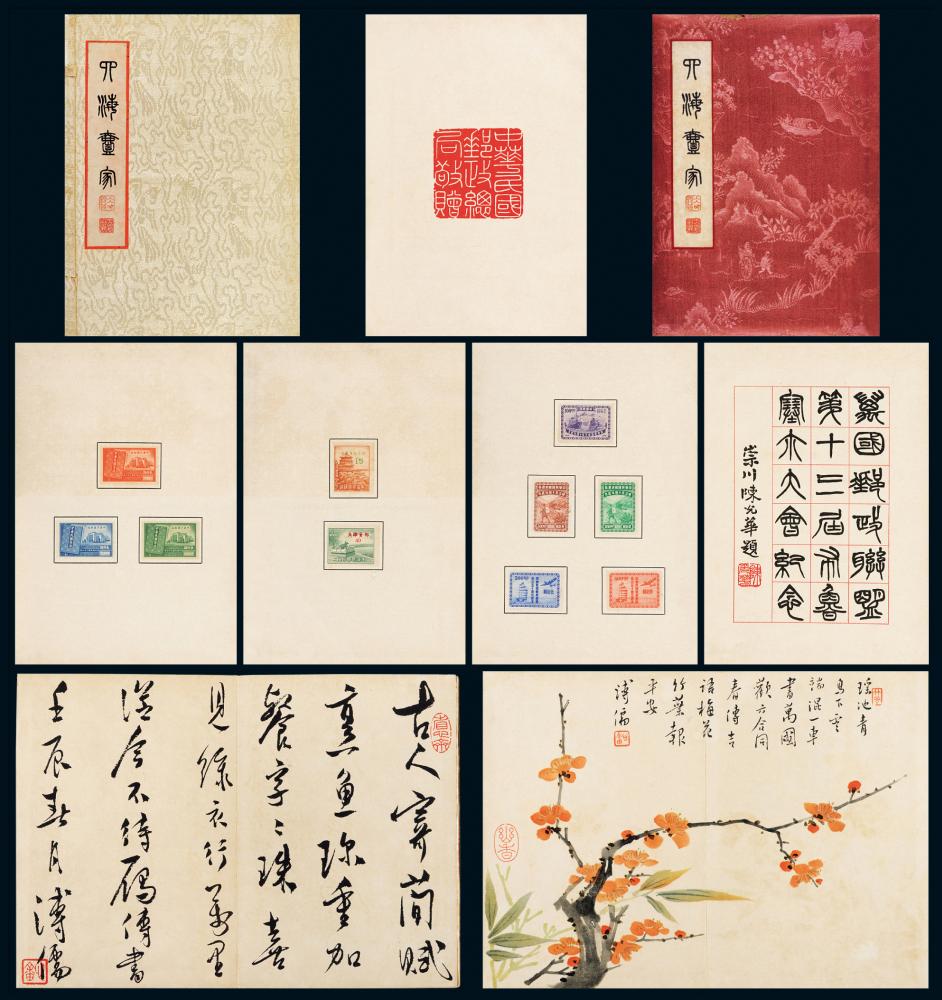 四海壹家
中華民國
郵政總
局敬贈
四海壹家
萬國郵政聯盟
第十三屆布魯
塞尒大會紀念
崇川陳華題
古人寄簡賦
烹魚珍重加
餐字〻珠喜
見綠衣行萬里
從今不待雁傳書
壬辰春月溥儒
瑤池青
鳥下雲
端混一車
書萬國
歡六合同
春傳吉
語梅花
竹葉報
平安
溥儒